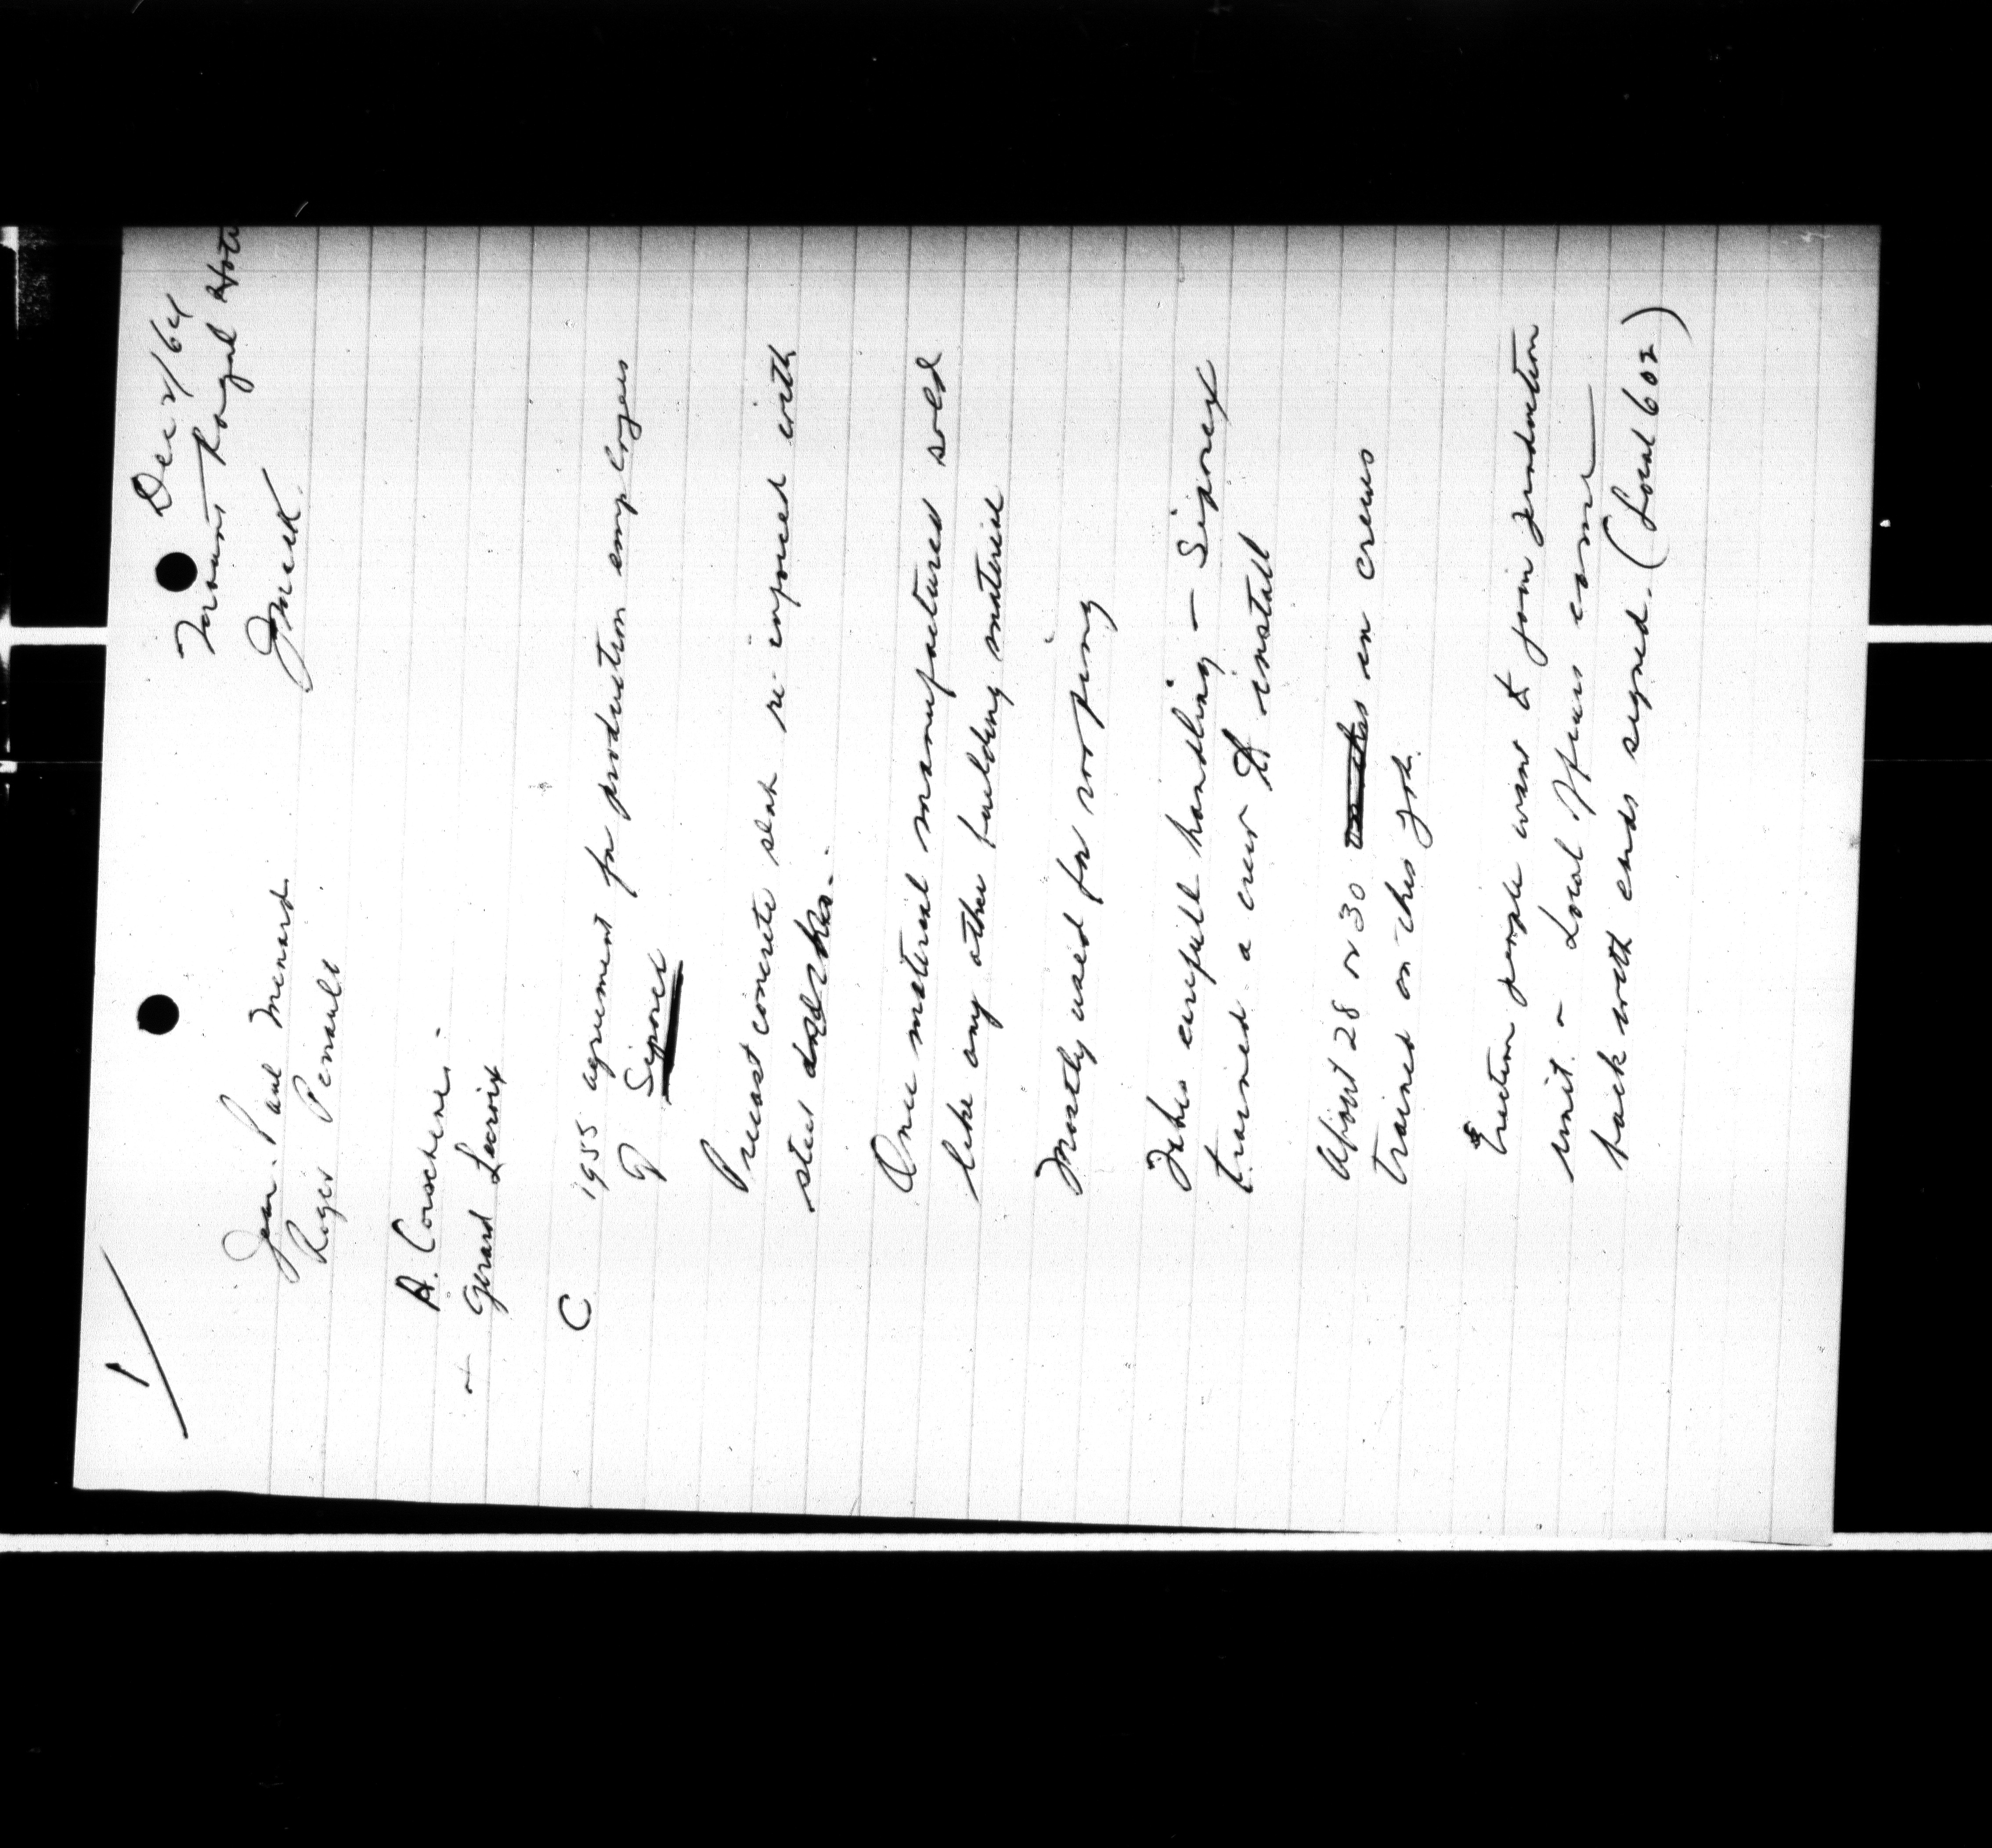 1/
Dec 2/64
Mount Royal Hote
Jean-Paul Menard.
Roger Perault
A. Corscheni -
+ Gerard Lacroix
C 1955 agreement for production employees
of Siporex
Precast concrete slab re-inforced with
steel
Once material manufactured sold
like any other building material
Mostly used for roofing
Takes carefull handling - Siporex
trained a crew to install
About 28 or 30 in crews
trained on this job.
Erection people want to join production
unit. - Local officers came
back with cards signed. (Local 602)